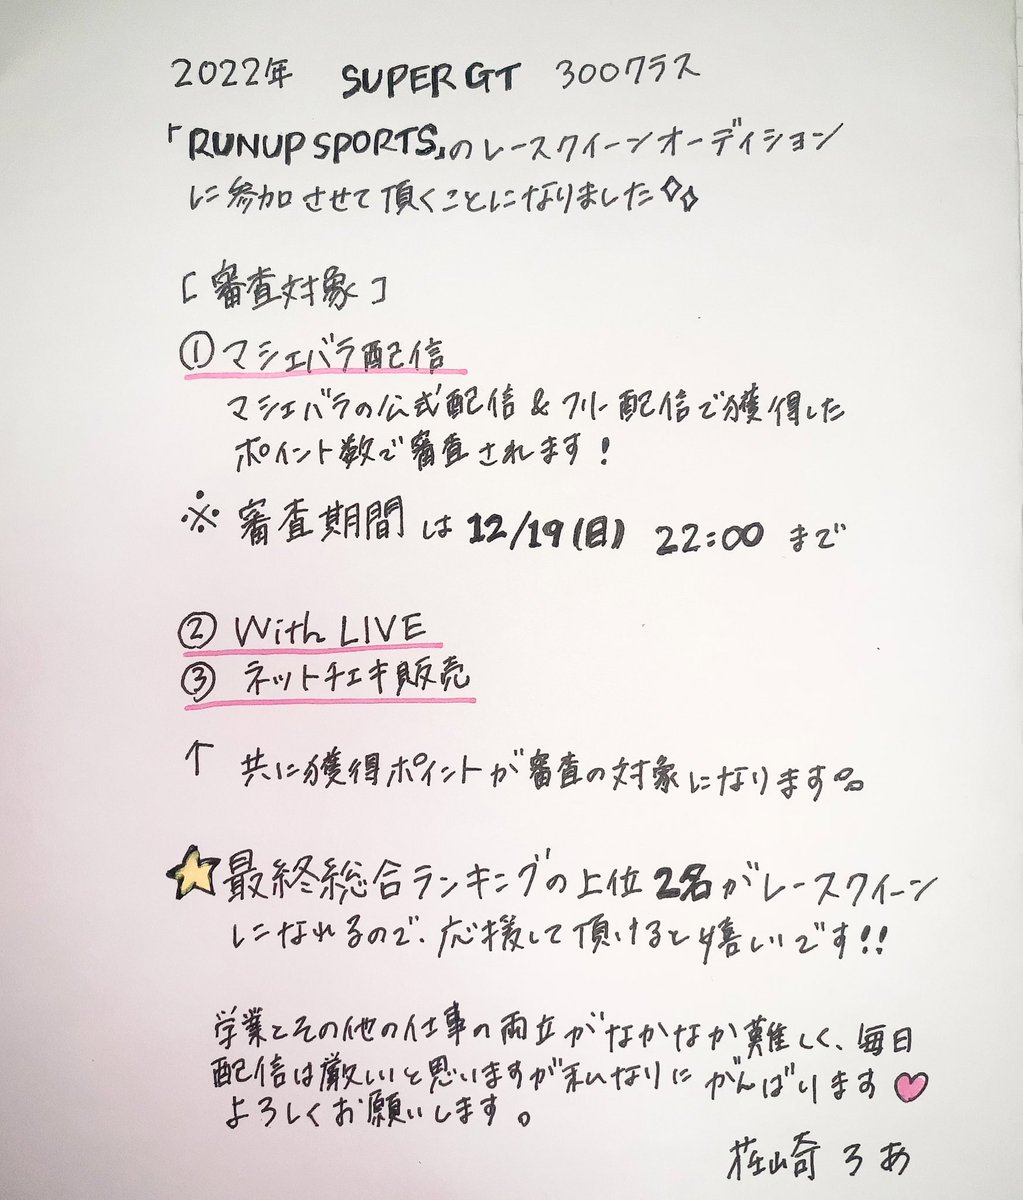 2022年 SUPER GT 300クラス
「RUNUP SPORTS」のレースクイーンオーディション
に参加させて頂くことになりました
[審査対象]
① マシェバラ配信
マシェバラの公式配信 & フリー配信で獲得した
ポイント数で審査されます!
※ 審査期間は12/19(日) 22:00まで
② With LIVE
③ ネットチェキ販売
↑ 共に獲得ポイントが審査の対象になります。
最終総合ランキングの上位2名がレースクイーン
になれるので、応援して頂けると嬉しいです!!
学業とその他の仕事の両立がなかなか難しく、毎日
配信は厳しいと思いますが私なりにがんばります
よろしくお願いします。
荘崎ろあ